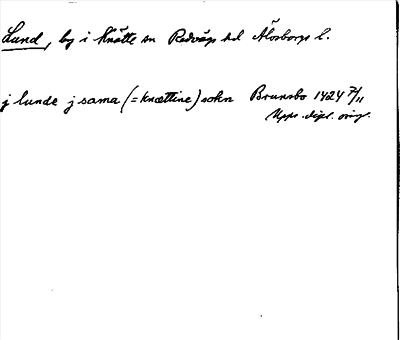 Lund, by i Knätte sn Redvägs hd Älvsborgs l.
j lunde j sama (= knættine) sokn Brunsbo 1424 7/11
Upps. dipl. orig.